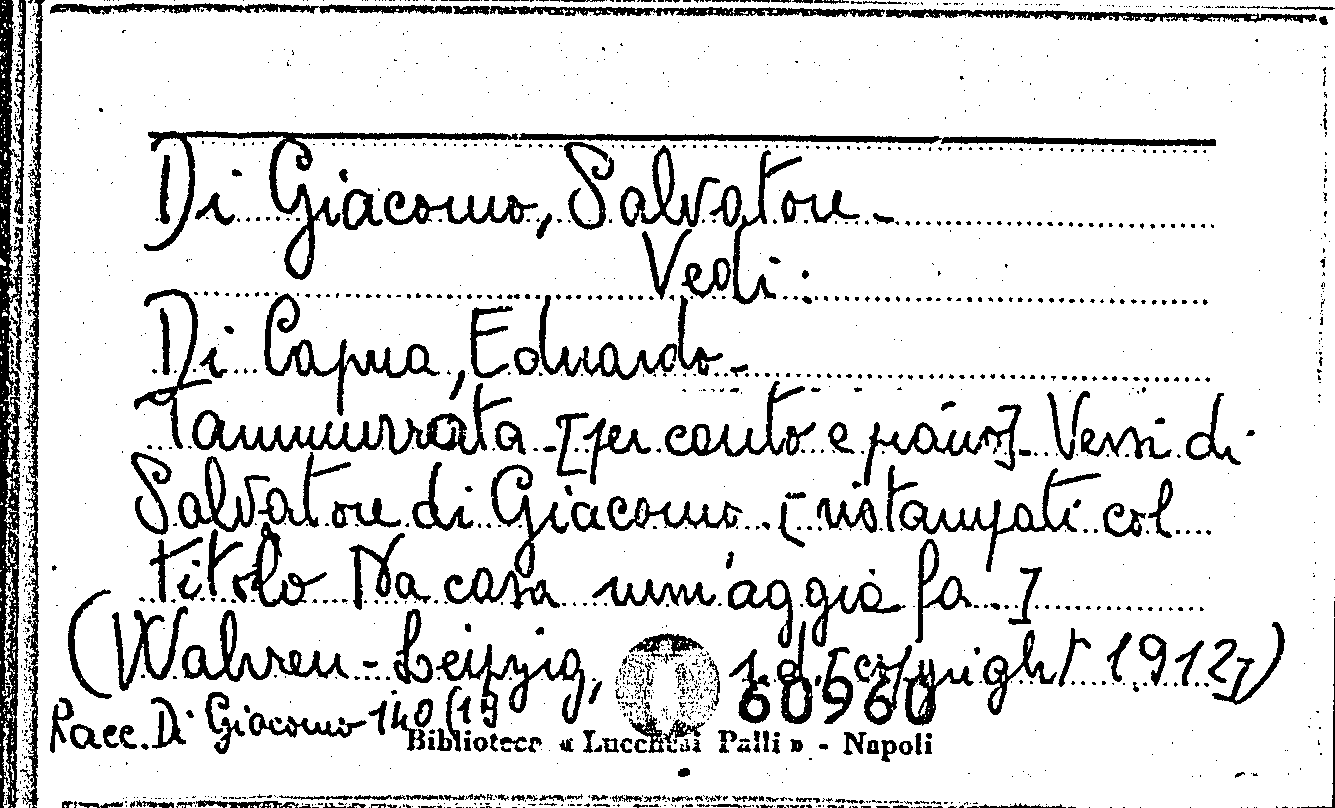 Di Giacomo, Salvatore -
Vedi:
Di Capua, Eduardo -
Tammurrata - [per canto e piano] - Versi di
Salvatore di Giacomo. [ristampati col
titolo Na casa num'aggia fa.]
(Wahren - Leipzig, s.d. [copyright 1912])
60960
Racc. Di Giacomo 140 (19
Biblioteca « Lucchesi Palli » - Napoli